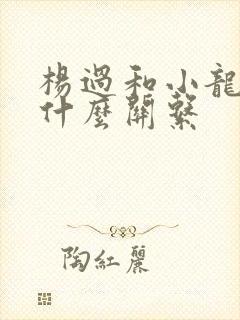 楊過和小龍
什麼關繫
陶紅麗